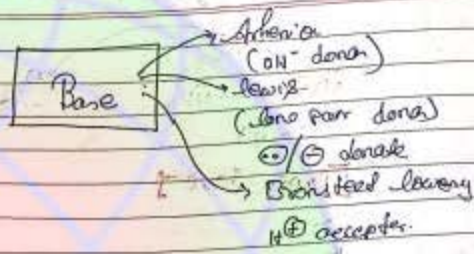 Arhenius
(OH⁻ donor)
Base
Lewis
(lone pair donor)
⊖ donate
Bronsted lowery
H⊕ accepter.